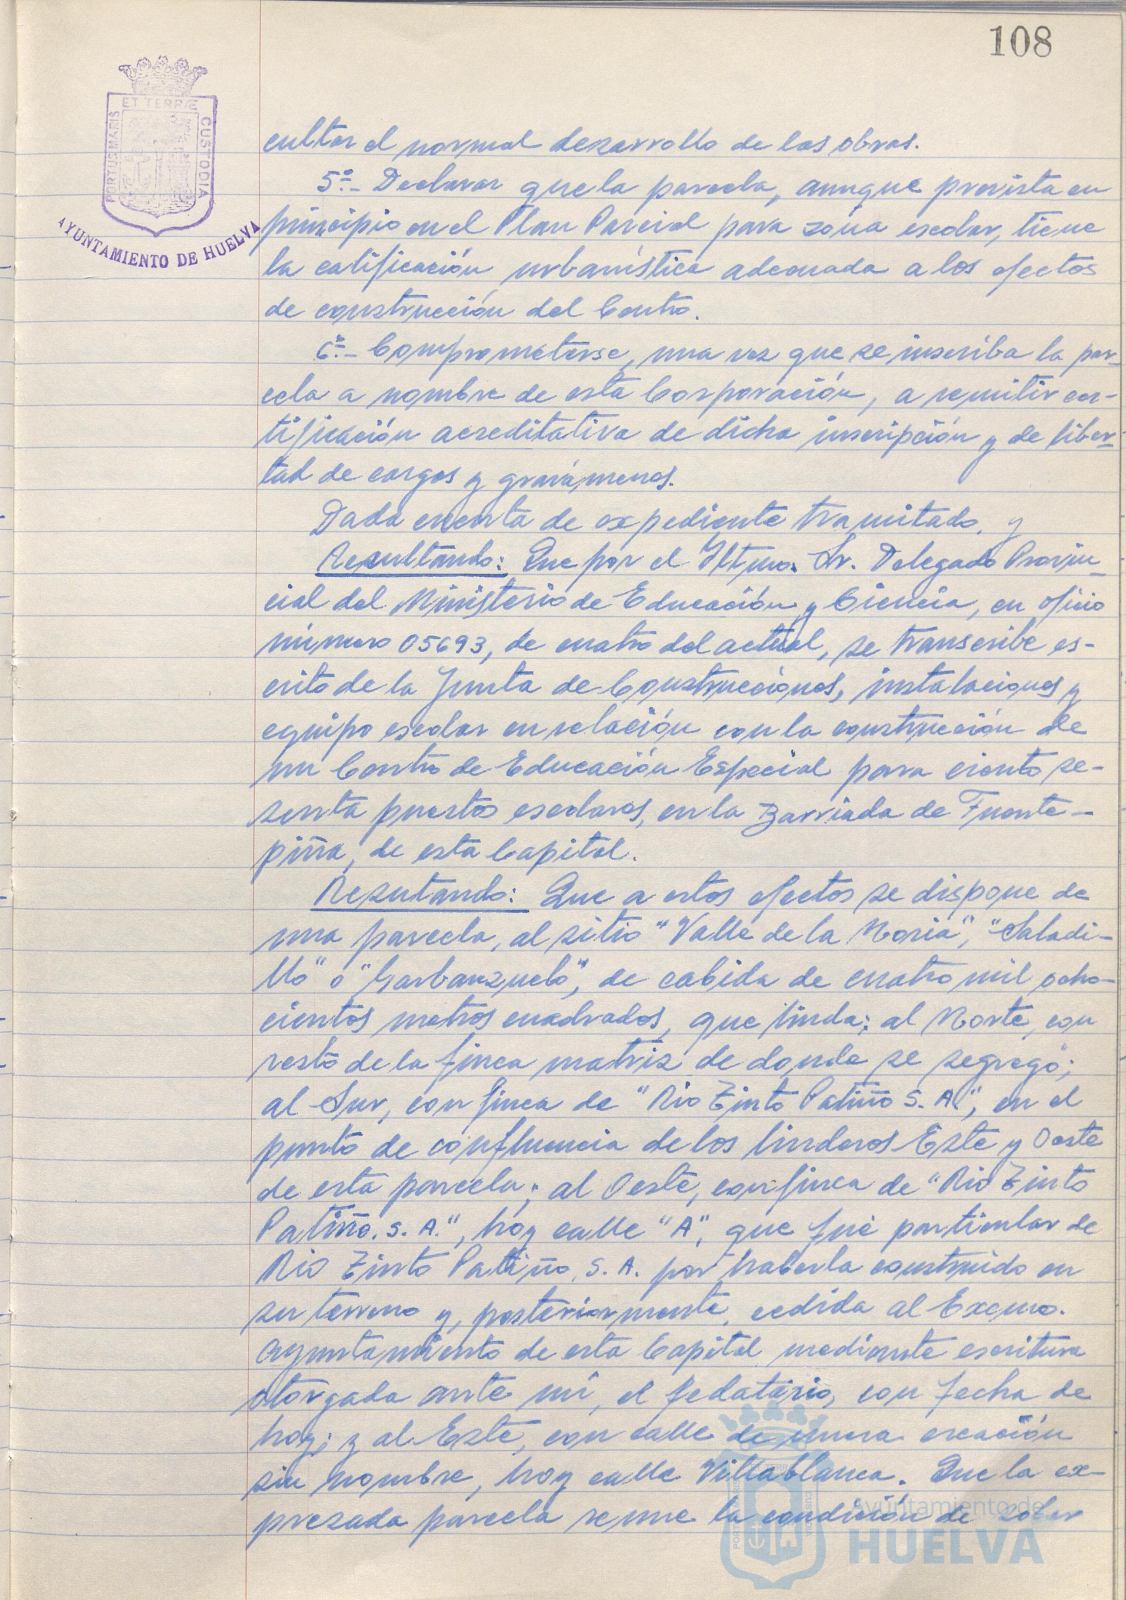 108
PORTUS MARIS
ET TERRÆ
CUSTODIA
AYUNTAMIENTO DE HUELVA
cultar el normal desarrollo de las obras.
5º.- Declarar que la parcela, aunque prevista en
principio en el Plan Parcial para zona escolar, tiene
la calificación urbanística adecuada a los efectos
de construcción del Centro.
6º.- Comprometerse, una vez que se inscriba la par-
cela a nombre de esta Corporación, a remitir cer-
tificación acreditativa de dicha inscripción y de liber-
tad de cargas y gravámenes.
Dada cuenta de expediente tramitado, y
Resultando: Que por el Iltmo. Sr. Delegado Provin-
cial del Ministerio de Educación y Ciencia, en oficio
número 05693, de cuatro del actual, se transcribe es-
crito de la Junta de Construcciones, instalaciones y
equipo escolar en relación con la construcción de
un Centro de Educación Especial para ciento se-
senta puestos escolares, en la Barriada de Fuente-
piña, de esta Capital.
Resutando: Que a estos efectos se dispone de
una parcela, al sitio "Valle de la Noria", "Saladi-
llo" o "Garbanzuelo", de cabida de cuatro mil ocho-
cientos metros cuadrados, que linda: al Norte, con
resto de la finca matriz de donde se segregó;
al Sur, con finca de "Rio Tinto Patiño S. A.", en el
punto de confluencia de los linderos Este y Oeste
de esta parcela; al Oeste, con finca de "Rio Tinto
Patiño. S. A.", hoy calle "A", que fué particular de
Rio Tinto Patiño, S. A. por haberla construido en
su terreno y, posteriormente, cedida al Excmo.
Ayuntamiento de esta Capital, mediante escritura
otorgada ante mí, el fedatario, con fecha de
hoy; y al Este, con calle de nueva creación
sin nombre, hoy calle Villablanca. Que la ex-
presada parcela reune la condición de solar
Ayuntamiento de
HUELVA